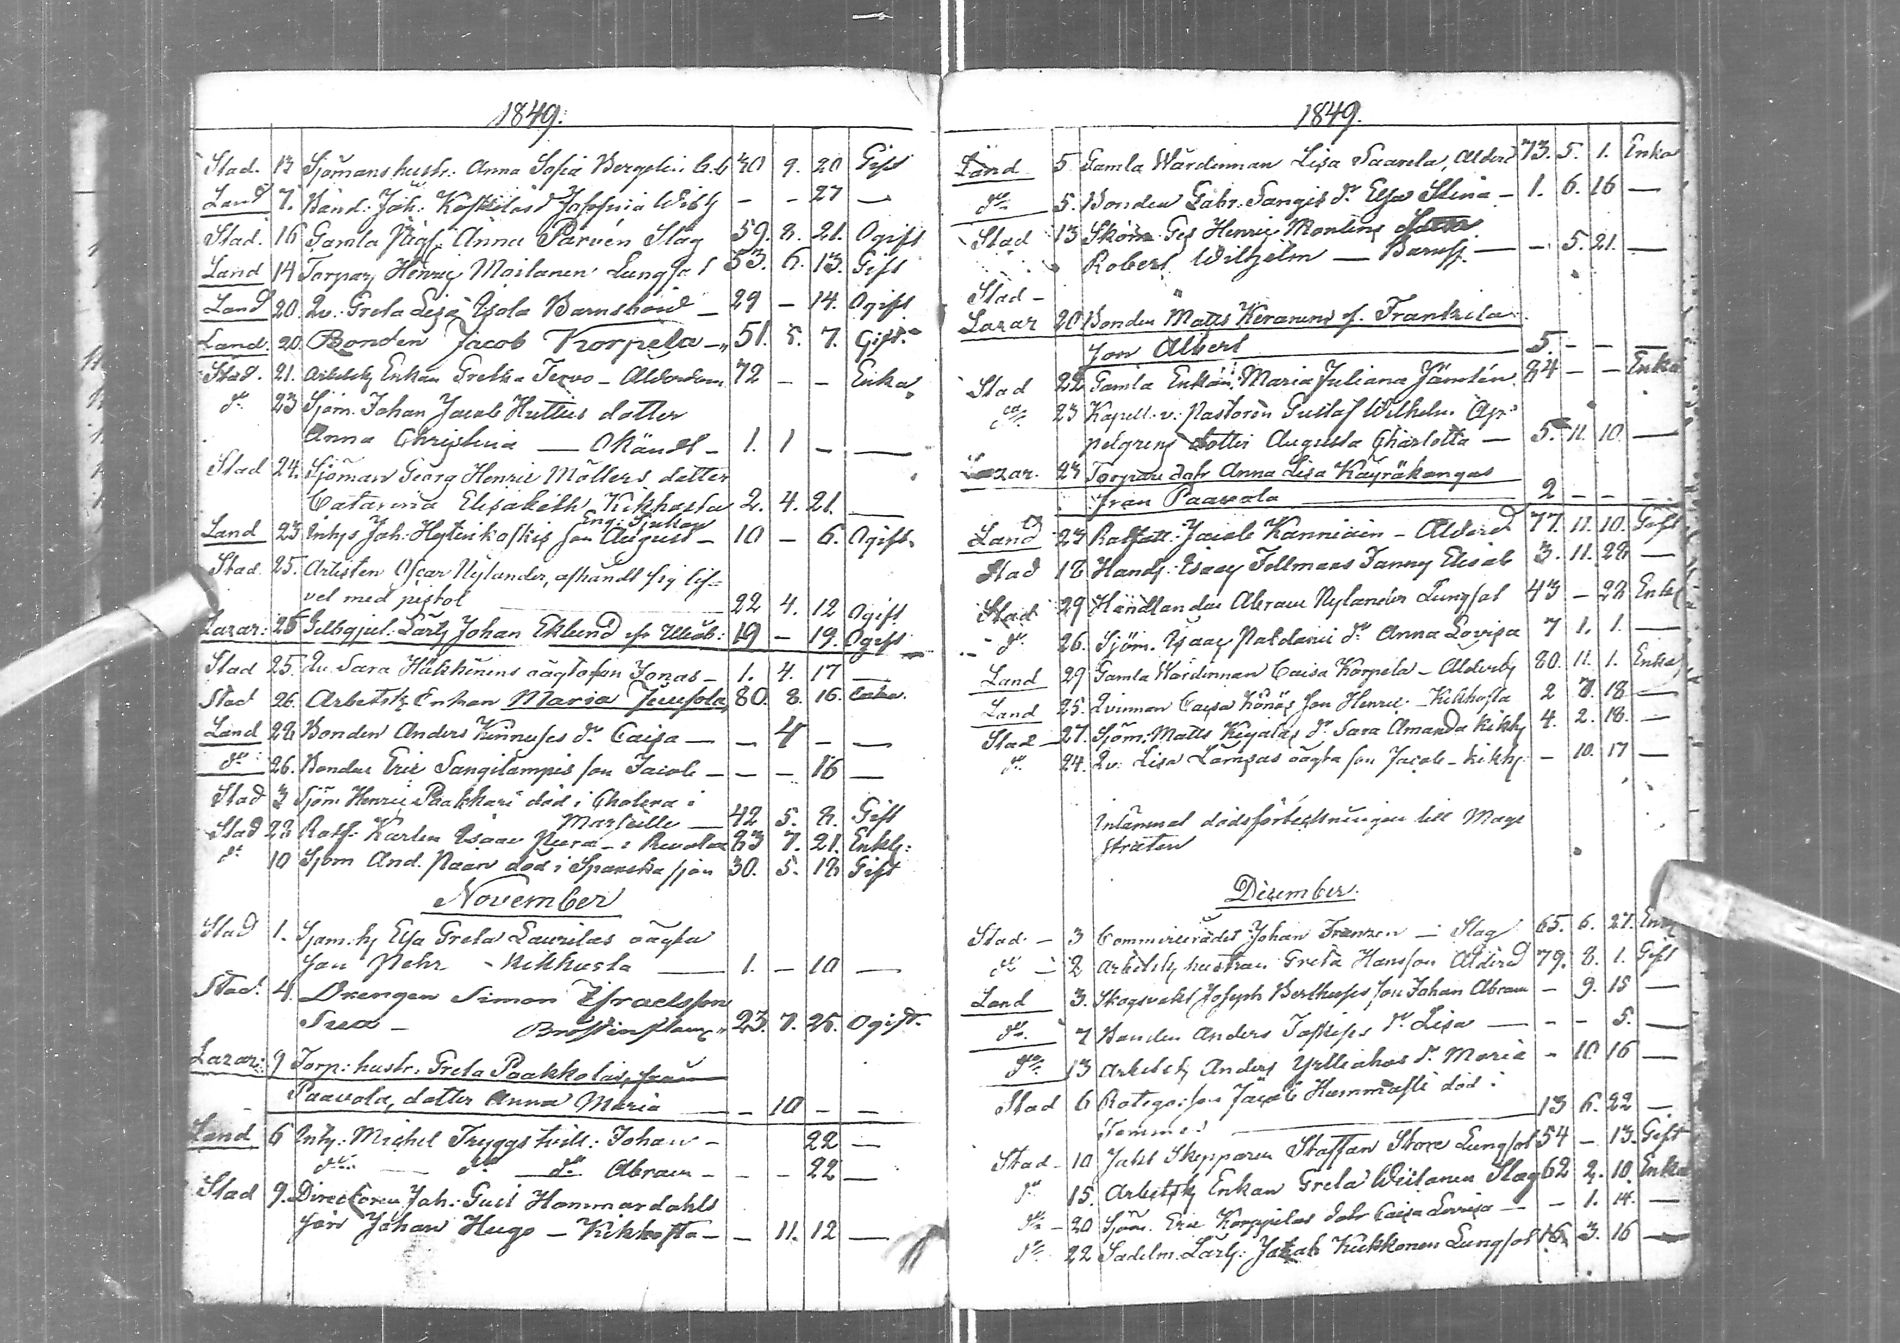 1849.
Stad. 13 Sjömanshustr. Anna Sofia Bergelin 30 9. 20 Gift
Land 7. Bond. Joh. Koskelas dr Josefina - - 27 —
Stad. 16 Gamla Pigf. Anna Parvén Slag 59. 8. 21. Ogift
Land 14 Torpar Henric Moilanen Lungsot 53. 6. 13. Gift
Land 20. Qv. Greta Lisa Ysola Barnsbörd — 29 — 14. Ogift
Land. 20. Bonden Jacob Korpela 51. 5. 7. Gift.
Stad. 21. Arbetsk Enkan Gretha Tervo - Ålderdom 72 — — Enka
do 23 Sjöm. Johan Jacob Huttus dotter
Anna Christina — Okändt — 1. 1 — —
Stad 24. Sjöman Georg Henric Möllers dotter
Catarina Elisabeth Kikhosta 2. 4. 21. —
Eng: Sjukan
Land 23 Inhys Joh. Heitinkoskis son August — 10 — 6. Ogift.
Stad. 25. Artisten Oscar Nylander, afhändt sig lif-
vet med pistol 22 4. 12 Ogift
Lazar: 25 Gelbgjut. Lärl Johan Eklund 19 — 19. Ogift
Stad 25. Qv. Sara Häkkinens oägta son Jonas — 1. 4. 17 —
Stad 26. Arbetsk Enkan Maria Juusola 80. 8. 16. Enka.
Land 28 Bonden Anders Kinnuses dr Caisa — — 4 — —
do 26. Bonden Eric Sangilampis son Jacob — — — 16 —
Stad 3 Sjöm Henric Paakkari död i Cholera i
Marseille — 42 5. 8. Gift
Stad 28 Karlen Isaac Pura 83 7. 21. Enkl:
do 10 Sjöm And. Paav död i Spanska sjön 30. 5. 18 Gift
November
Stad 1. Sjöm. h Elsa Greta Laurilas oägta
son Pehr - Kikhosta — 1. — 10 —
Stad. 4. Drengen Simon Israelsson
Sua — Bröstinflam. 23. 7. 25. Ogift.
Lazar: 9 Torp: hustr. Greta Paakkolas, från
Paavola, dotter Anna Maria — — 10 — —
Land 6 Inhy: Michel Tryggs tvill: Johan — 22 —
do — do do Abram — — — 22 —
Stad 9. Directoren Joh: Gust Hammardahls
son Johan Hugo — Kikhosta — — 11. 12 —
1849.
Land 5 Gamla Värdinnan Lisa Saarela, Ålderd 73. 5. 1. Enka
do 5. Bonden Gabr. Sangis dr Elsa Stina — 1. 6. 16 —
Stad 13 Skom. Ges Henric Montins
Robert Wilhelm — Barnsj. — — 5. 21. —
Stad —
Lazar 20 Bonden Matts Keranens af Frantsila
son Albert 5. — — —
Stad 22 Gamla Enkan Maria Juliana Jämtén 84 — — Enka
do 23 Kapell. v. Pastoren Gustaf Wilhelm Ap-
pelgrens dotter Augusta Charlotta — 5. 11. 10. —
Lazar. 24 Torpare dotr Anna Lisa Käyräkangas
från Paavola 2 — — —
Land 23 Jacob Kanniain — Ålderd 77. 11. 10. Gift
Stad 18 Handl. Isaac Fellmans Fanny Elisab 3. 11. 28 —
Stad 29 Handlanden Abram Nylander Lungsot 43 — 28 Enkl
do 26. Sjöm. Isaac Paldanii dr Anna Lovisa 7 1. 1. —
Land 29 Gamla Värdinnan Caisa Korpela — Ålderd 80. 11. 1. Enka
Land 25. Qvinnan Caisa Könös son Henric - Kikhosta 2 7. 18 —
Stad — 27. Sjöm: Matts Keyalas dr Sara Amanda Kikh 4. 2. 18. —
do 24. Qv. Lisa Lamsas oägta son Jacob — Kikh — 10. 17 —
Inlämnat dödsförteckningen till Magi
straten
Dezember.
Stad — 3 Commerserådet Johan Franzen — Slag 65. 6. 27. Enkl
do — 2 Arbetsk hustrun Greta Hansson Ålderd 79. 8. 1. Gift
Land 3. Skogsvakt Joseph Berthuses son Johan Abram — 9. 15 —
do. 7 Bonden Anders Taskises dr Lisa — — — 5. —
do 13 Arbetsk Anders Ylliahos dr Maria — 10 16 —
Stad 6 son Jacob Hammasti död i
13 6. 22 —
Stad — 10 Jakt Skepparen Staffan Store Lungsot 54 — 13. Gift
do 15. Arbetsk Enkan Greta Weilanen Slag 62 2. 10. Enka
do — 20 Sjöm. Eric Korppilas dotr Caisa Lovisa — — 1. 14. —
do 22 Sadelm. Lärl: Jakob Kukkonen Lungsot 16 3. 16 —